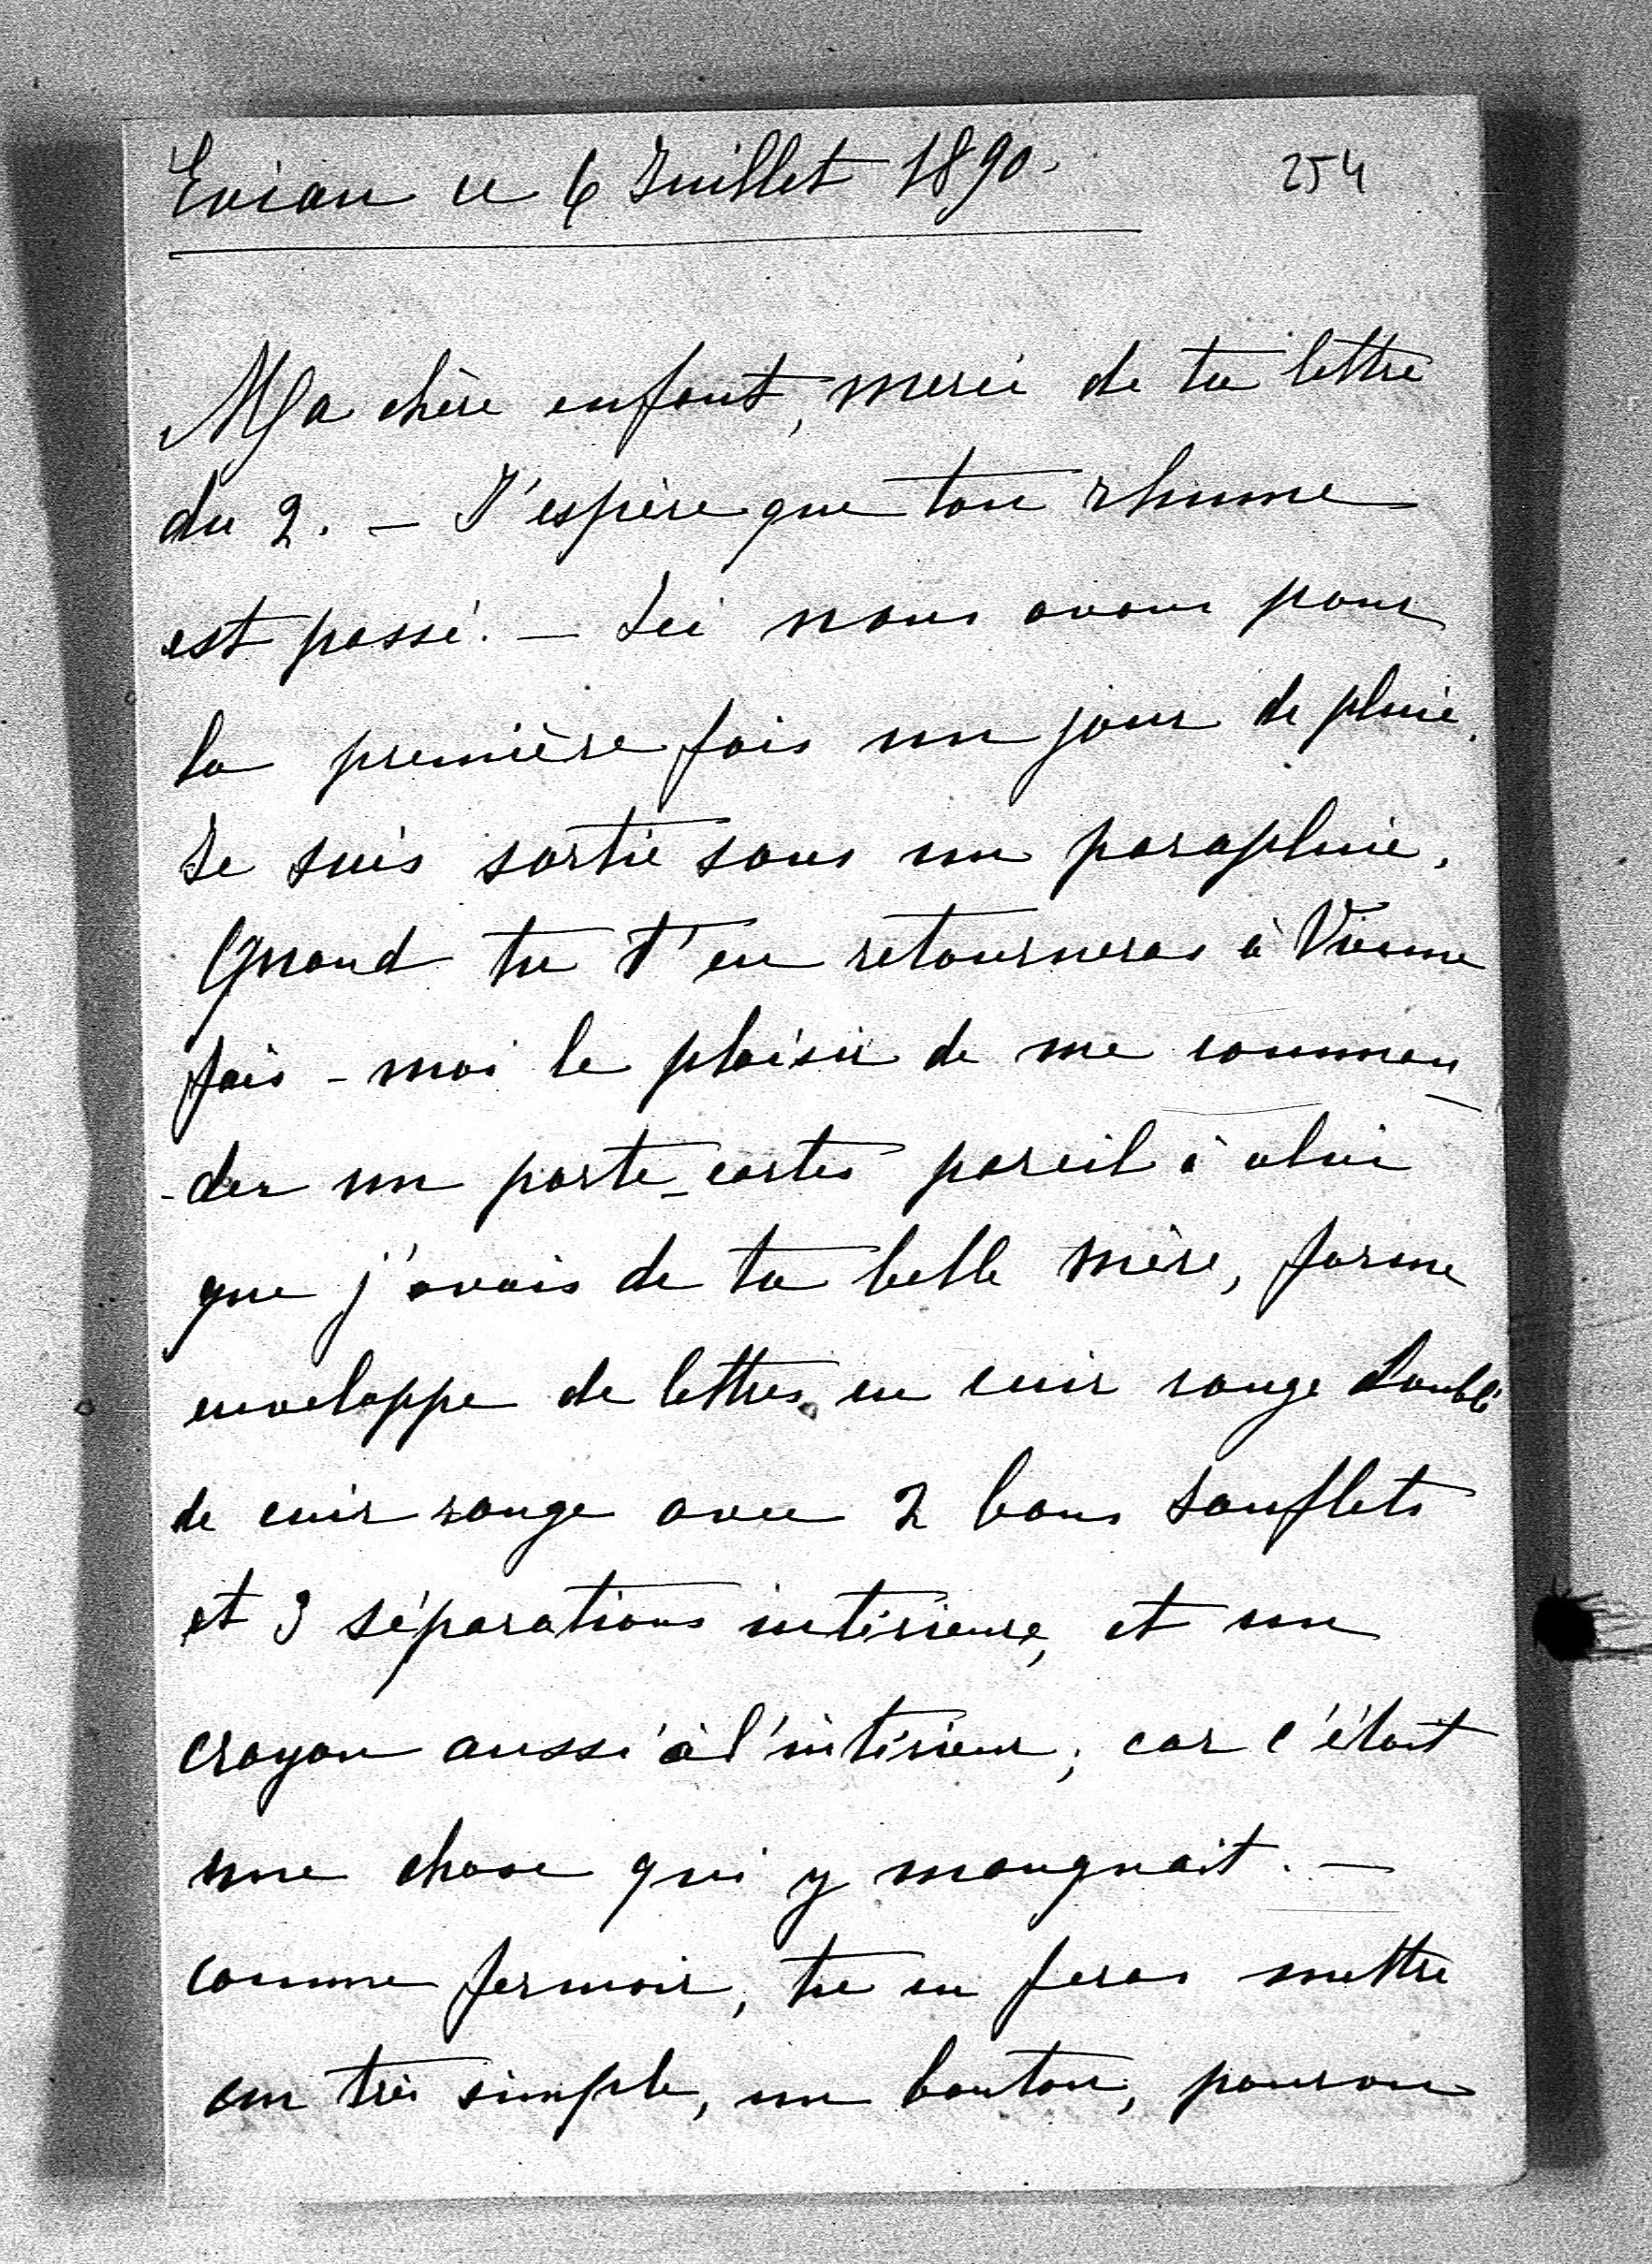 Evian ce 6 Juillet 1890.
254
Ma chère enfant, merci de ta lettre
du 2. – J'espère que ton rhume
est passé. – Ici nous avons pour
la première fois un jour de pluie.
Je suis sortie sous un parapluie.
Quand tu t'en retourneras à Vienne
fais-moi le plaisir de me comman
-der un porte-cartes pareil à celui
que j'avais de ta belle mère, forme
enveloppe de lettres, en cuir rouge doublé
de cuir rouge avec 2 bons souflets
et 3 séparations intérieure, et un
crayon aussi à l'intérieur; car c'était
une chose qui y manquait. –
comme fermoir, tu en feras mettre
un très simple, un bouton, pourvu